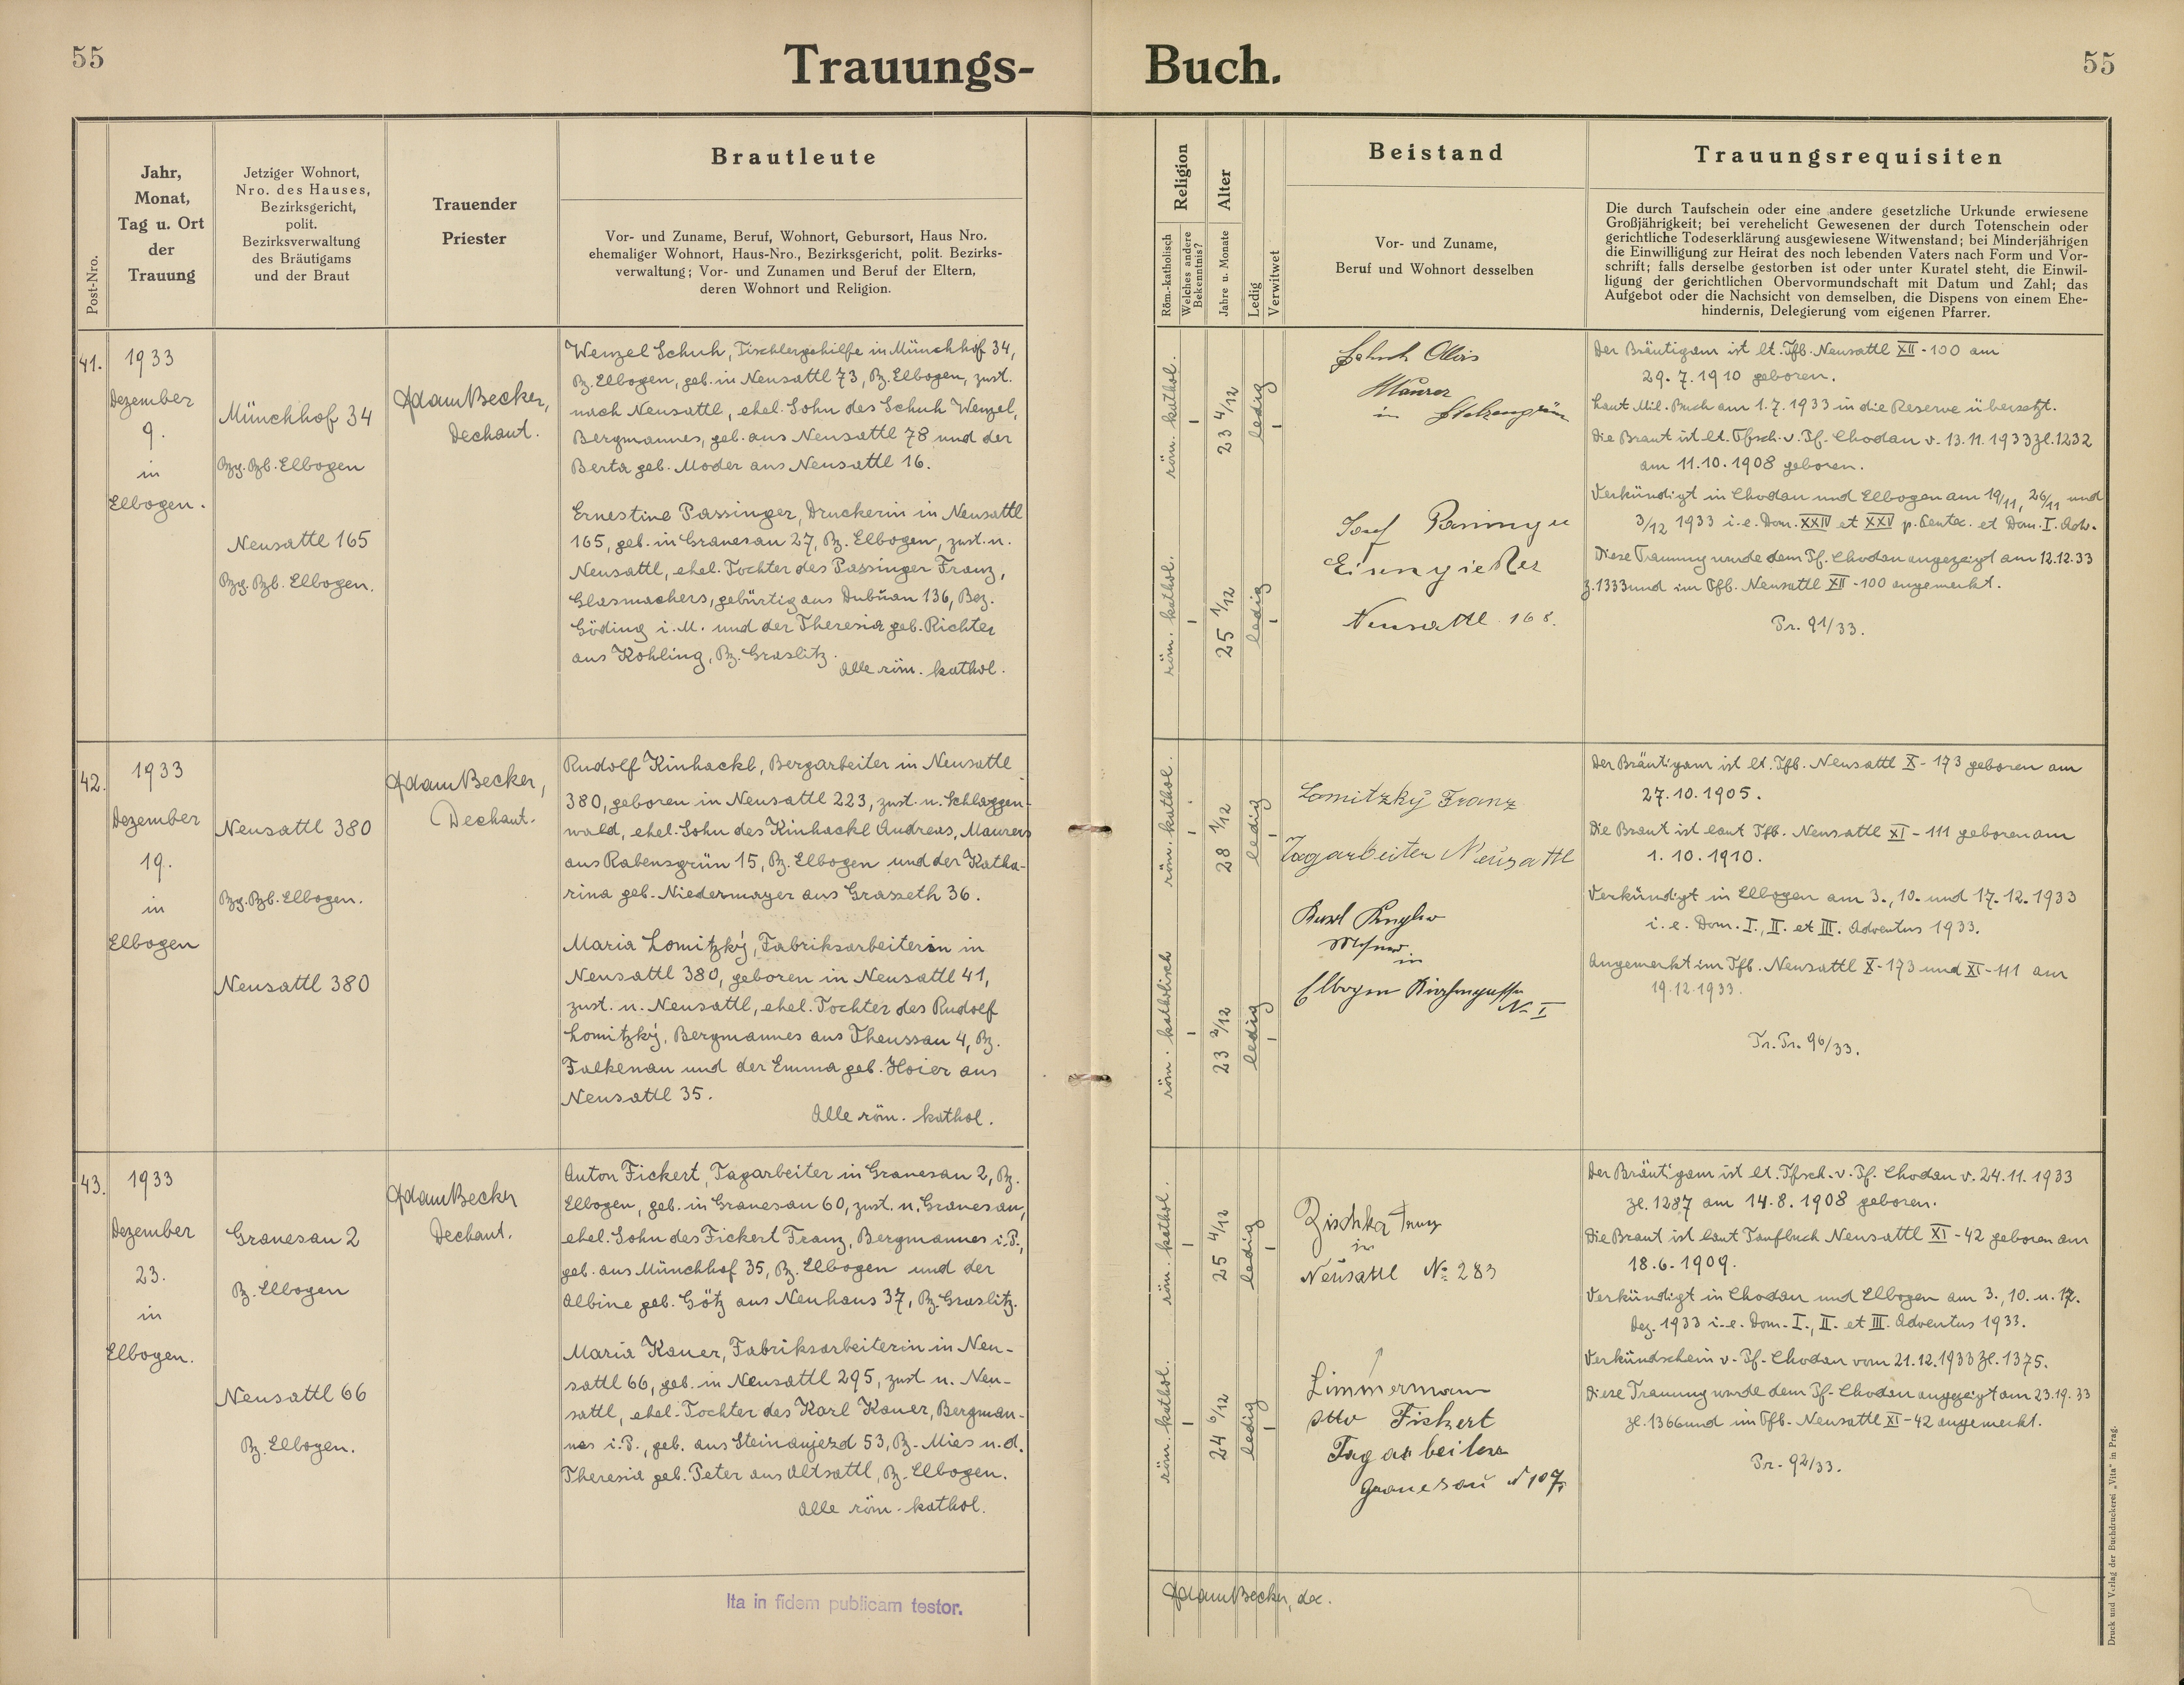 55
Trauungs-
Buch.
55
Post-Nro.
Jahr,
Monat,
Tag u. Ort
der
Trauung
Jetziger Wohnort,
Nro. des Hauses,
Bezirksgericht,
polit.
Bezirksverwaltung
des Bräutigams
und der Braut
Trauender
Priester
Brautleute
Vor- und Zuname, Beruf, Wohnort, Gebursort, Haus Nro.
ehemaliger Wohnort, Haus-Nro., Bezirksgericht, polit. Bezirks-
verwaltung; Vor- und Zunamen und Beruf der Eltern,
deren Wohnort und Religion.
Religion
Röm.-katholisch
Welches andere
Bekenntnis?
Alter
Jahre u. Monate
Ledig
Verwitwet
Beistand
Vor- und Zuname,
Beruf und Wohnort desselben
Trauungsrequisiten
Die durch Taufschein oder eine andere gesetzliche Urkunde erwiesene
Großjährigkeit; bei verehelicht Gewesenen der durch Totenschein oder
gerichtliche Todeserklärung ausgewiesene Witwenstand; bei Minderjährigen
die Einwilligung zur Heirat des noch lebenden Vaters nach Form und Vor-
schrift; falls derselbe gestorben ist oder unter Kuratel steht, die Einwil-
ligung der gerichtlichen Obervormundschaft mit Datum und Zahl; das
Aufgebot oder die Nachsicht von demselben, die Dispens von einem Ehe-
hindernis, Delegierung vom eigenen Pfarrer.
41.
1933
Dezember
9.
in
Elbogen.
Münchhof 34
Bzg. Bzb. Elbogen
Neusattl 165
Bzg. Bzb. Elbogen.
Adam Becker,
Dechant.
Wenzel Schuh, Tischlergehilfe in Münchhof 34,
Bz. Elbogen, geb. in Neusattl 73, Bz. Elbogen, zust.
nach Neusattl, ehel. Sohn des Schuh Wenzel,
Bergmannes, geb. aus Neusattl 78 und der
Berta geb. Moder aus Neusattl 16.
Ernestine Passinger, Druckerin in Neusattl
165, geb. in Granesau 27, Bz. Elbogen, zust. n.
Neusattl, ehel. Tochter des Passinger Franz,
Glasmachers, gebürtig aus Dubňan 136, Bez.
Göding i. M. und der Theresia geb. Richter
aus Kohling, Bz. Graslitz.
Alle röm. kathol.
röm. kathol.
–
23 4/12
ledig
–
röm. kathol.
–
25 1/12
ledig
–
Schuh Alois
Maurer
in Stelzengrün
Josef
Eisengießer
Neusattl 168.
Der Bräutigam ist lt. Tfb. Neusattl XII - 100 am
29. 7. 1910 geboren.
Laut Mil. Buch am 1. 7. 1933 in die Reserve übersetzt.
Die Braut ist lt. Tfsch. v. Pf. Chodau v. 13. 11. 1933 Zl. 1232
am 11. 10. 1908 geboren.
Verkündigt in Chodau und Elbogen am 19/11, 26/11 und
3/12 1933 i. e. Dom. XXIV et XXV p. Pentec. et Dom. I. Adv.
Diese Trauung wurde dem Pf. Chodau angezeigt am 12.12.33
Z. 1333 und im Tfb. Neusattl XII - 100 angemerkt.
Pr. 91/33.
42.
1933
Dezember
19.
in
Elbogen
Neusattl 380
Bzg. Bzb. Elbogen.
Neusattl 380
Adam Becker,
Dechant.
Rudolf Kinhackl, Bergarbeiter in Neusattl
380, geboren in Neusattl 223, zust. n. Schlaggen-
wald, ehel. Sohn des Kinhackl Andreas, Maurers
aus Rabensgrün 15, Bz. Elbogen und der Katha-
rina geb. Niedermayer aus Grasseth 36.
Maria Lomitzký, Fabriksarbeiterin in
Neusattl 380, geboren in Neusattl 41,
zust. n. Neusattl, ehel. Tochter des Rudolf
Lomitzký, Bergmannes aus Theussau 4, Bz.
Falkenau und der Emma geb. Hoier aus
Neusattl 35.
Alle röm. kathol.
röm. kathol.
–
28 1/12
ledig
–
röm. katholisch
–
23 2/12
ledig
–
Lomitzký Franz
Tagarbeiter Neusattl
Karl
Mesner
in
Elbogen Kirchengasse
N. I
Der Bräutigam ist lt. Tfb. Neusattl X - 173 geboren am
27. 10. 1905.
Die Braut ist laut Tfb. Neusattl XI - 111 geboren am
1. 10. 1910.
Verkündigt in Elbogen am 3., 10. und 17. 12. 1933
i. e. Dom. I., II. et III. Adventus 1933.
Angemerkt im Tfb. Neusattl X - 173 und XI - 111 am
19. 12. 1933.
Tr. Pr. 96/33.
43.
1933
Dezember
23.
in
Elbogen.
Granesau 2
Bz. Elbogen
Neusattl 66
Bz. Elbogen.
Adam Becker
Dechant.
Anton Fickert, Tagarbeiter in Granesau 2, Bz.
Elbogen, geb. in Granesau 60, zust. n. Granesau,
ehel. Sohn des Fickert Franz, Bergmannes i. P.,
geb. aus Münchhof 35, Bz. Elbogen und der
Albine geb. Götz aus Neuhaus 37, Bz. Graslitz.
Maria Kauer, Fabriksarbeiterin in Neu-
sattl 66, geb. in Neusattl 295, zust. n. Neu-
sattl, ehel. Tochter des Karl Kauer, Bergman-
nes i. P., geb. aus Steinaujezd 53, Bz. Mies u. d.
Theresia geb. Peter aus Altsattl, Bz. Elbogen.
Alle röm. kathol.
röm. kathol.
–
25 4/12
ledig
–
röm. kathol.
–
24 6/12
ledig
–
Zischka Franz
in
Neusattl No 283
Zimmermann
Otto Fickert
Tagarbeiter
Granesau N 107
Der Bräutigam ist lt. Tfsch. v. Pf. Chodau v. 24. 11. 1933
Zl. 1287 am 14. 8. 1908 geboren.
Die Braut ist laut Taufbuch Neusattl XI - 42 geboren am
18. 6. 1909.
Verkündigt in Chodau und Elbogen am 3., 10. u. 17.
Dez. 1933 i. e. Dom. I., II. et III. Adventus 1933.
Verkündschein v. Pf. Chodau vom 21. 12. 1933 Zl. 1375.
Diese Trauung wurde dem Pf. Chodau angezeigt am 23. 19. 33
Zl. 1366 und im Tfb. Neusattl XI - 42 angemerkt.
Pr. 92/33.
Ita in fidem publicam testor.
Adam Becker, dec.
Druck und Verlag der Buchdruckerei „Vita" in Prag.